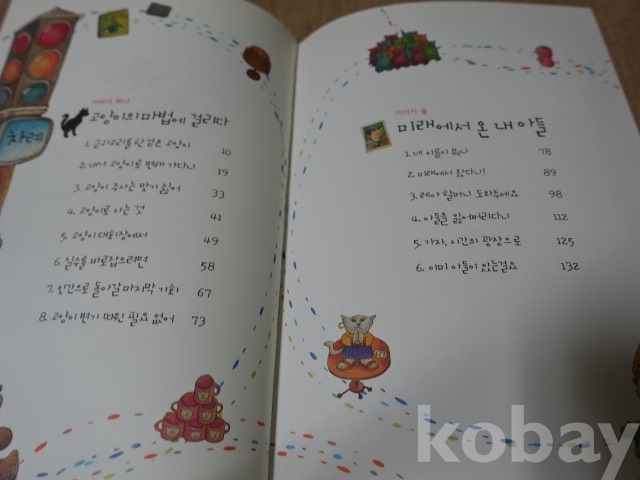 차례
이야기 하나
고양이의 마법에 걸리다
1. 금귀고리를 한 검은 고양이 10
2. 내가 고양이로 변해 가다니 19
3. 고양이 주사는 맞기 싫어 33
4. 고양이로 사는 것 41
5. 고양이 대회장에서 49
6. 실수를 바로잡으려면 58
7. 인간으로 돌아갈 마지막 기회 67
8. 고양이 변기 따윈 필요 없어 73
이야기 둘
미래에서 온 내 아들
1. 네 이름이 뭐니 78
2. 미래에서 왔다니! 89
3. 레아 할머니 도와주세요 98
4. 아들을 잃어버리다니 112
5. 가자, 시간의 광장으로 125
6. 이미 아들이 있는걸요 132
kobay